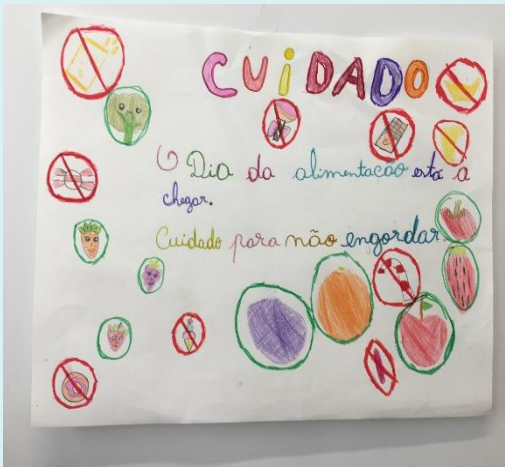 CUiDADO
O Dia da alimentacao está a
chegar.
Cuidado para não engordar.